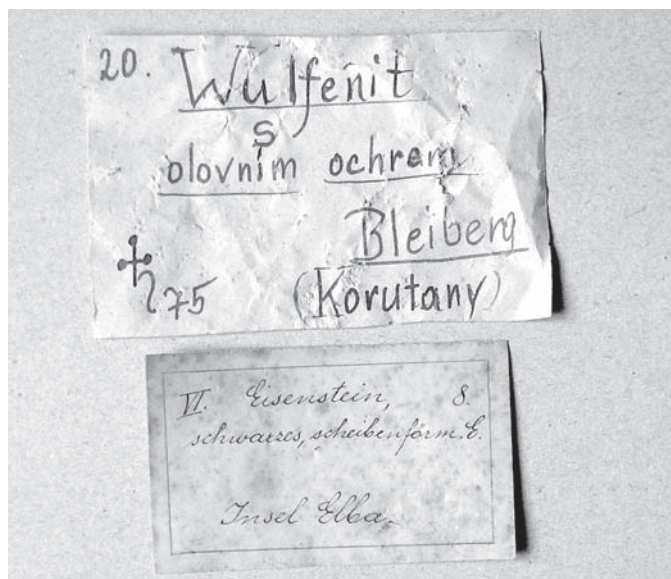 20. Wulfenit
s
olovním ochrem
Bleiberg
75 (Korutany)
VI. Eisenstein, 8.
schwarzes, scheibenförm. E.
Insel Elba.